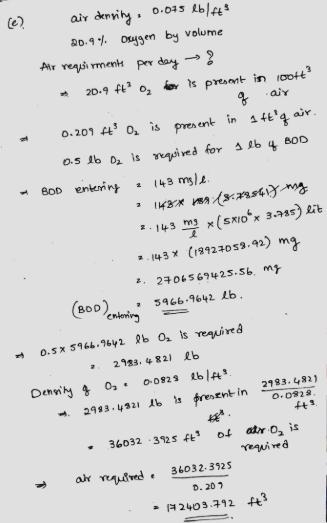 (e) air density = 0.075 lb/ft³
20.9% oxygen by volume
Air requirments per day → ?
⇒ 20.9 ft³ O₂ is present in 100ft³ of air
⇒ 0.209 ft³ O₂ is present in 1 ft³ of air.
0.5 lb O₂ is required for 1 lb of BOD
⇒ BOD entering = 143 mg/l.
= 143 mg/l × (5×10⁶ × 3.785) lit
= 143 × (18927058.92) mg
= 2706569425.56 mg
(BOD)entering = 5966.9642 lb.
⇒ 0.5 × 5966.9642 lb O₂ is required
= 2983.4821 lb
Density of O₂ = 0.0828 lb/ft³.
⇒ 2983.4821 lb is present in 2983.4821 / 0.0828 ft³.
= 36032.3925 ft³ of O₂ is required
⇒ air required = 36032.3925 / 0.209
= 172403.792 ft³